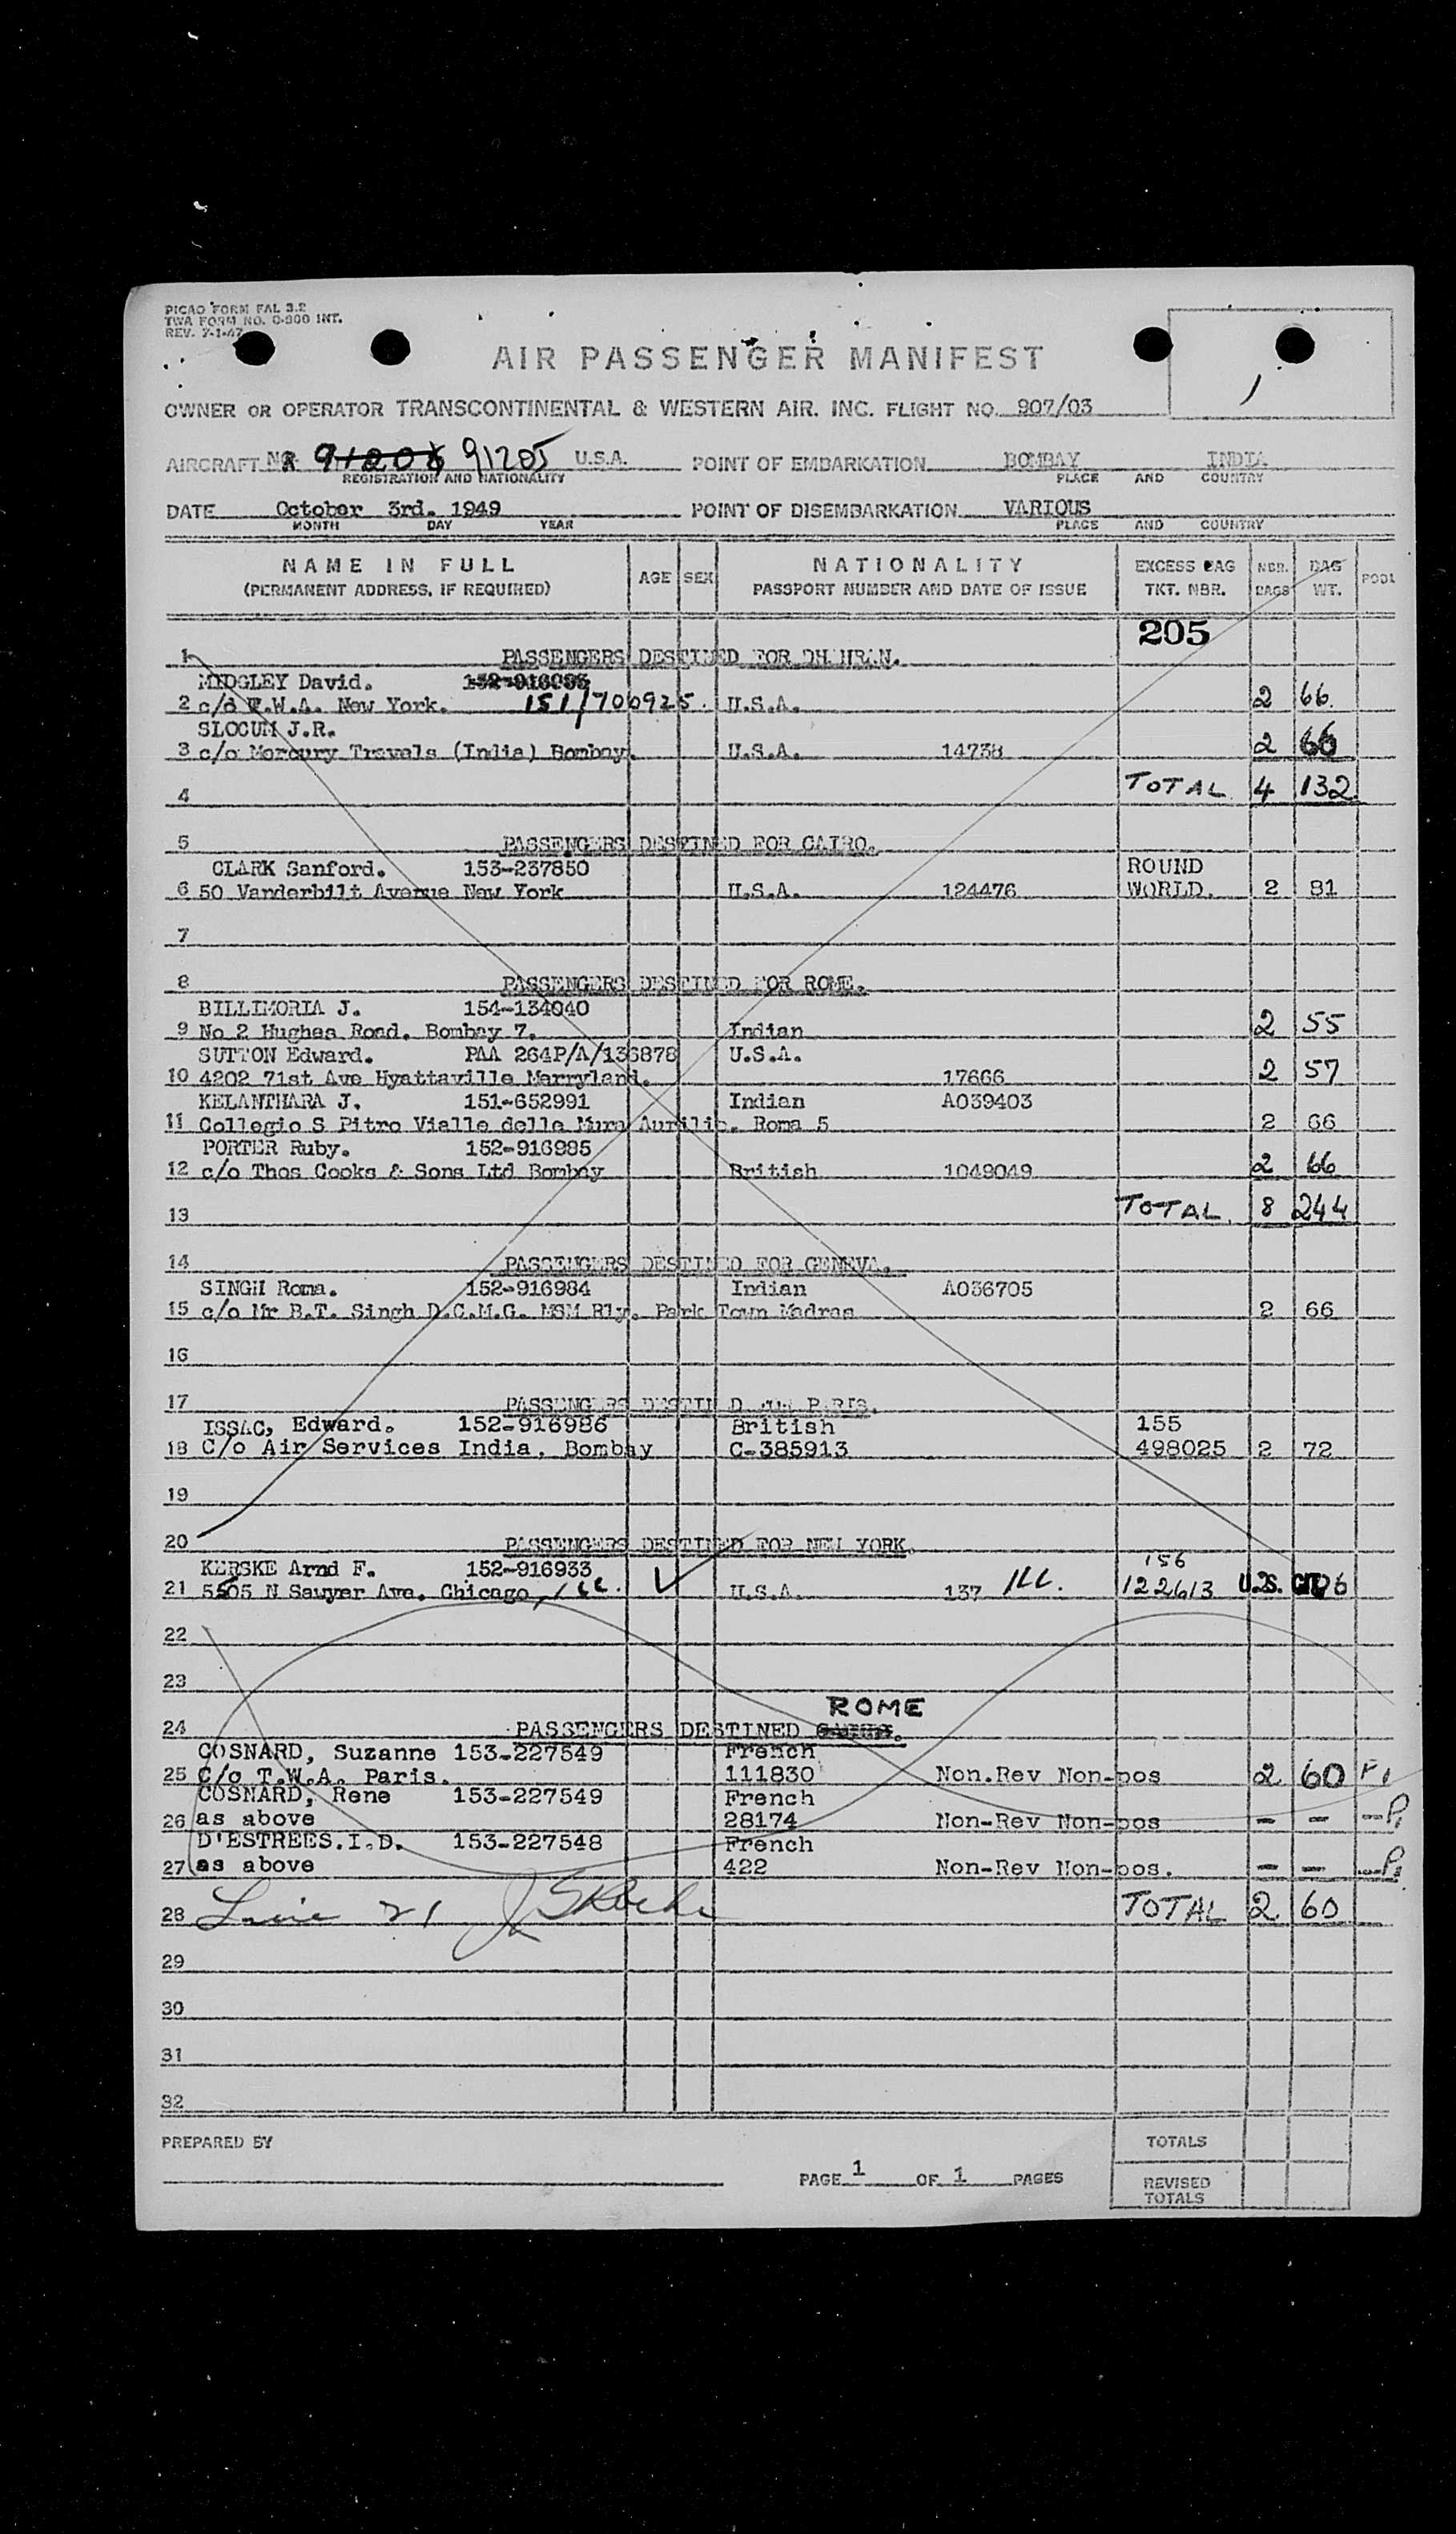 PICAO FORM FAL 3.2
TWA FORM NO. O-900 INT.
REV. 7-1-47
AIR PASSENGER MANIFEST
OWNER OR OPERATOR TRANSCONTINENTAL & WESTERN AIR. INC. FLIGHT NO. 907/03
AIRCRAFT 91205 U.S.A. POINT OF EMBARKATION BOMBAY INDIA
REGISTRATION AND NATIONALITY PLACE AND COUNTRY
DATE October 3rd. 1949 POINT OF DISEMBARKATION VARIOUS
MONTH DAY YEAR PLACE AND COUNTRY
NAME IN FULL AGE SEX NATIONALITY EXCESS BAG NBR. BAG POOL
(PERMANENT ADDRESS, IF REQUIRED) PASSPORT NUMBER AND DATE OF ISSUE TKT. NBR. BAGS WT.
205
1 PASSENGERS DESTINED FOR DHAHRAN.
MIDGLEY David.
2 c/o T.W.A. New York. 151/700925. U.S.A. 2 66.
SLOCUM J.R.
3 c/o Mercury Travels (India) Bombay. U.S.A. 14738 2 66
4 TOTAL 4 132
5 PASSENGERS DESTINED FOR CAIRO.
CLARK Sanford. 153-237850 ROUND
6 50 Vanderbilt Avenue New York U.S.A. 124476 WORLD. 2 81
7
8 PASSENGERS DESTINED FOR ROME.
BILLIMORIA J. 154-134040
9 No 2 Hughes Road. Bombay 7. Indian 2 55
SUTTON Edward. PAA 264P/A/136878 U.S.A.
10 4202 71st Ave Hyattaville Marryland. 17666 2 57
KELANTHARA J. 151-652991 Indian A039403
11 Collegio S Pitro Vialle delle Mura Aurilic. Roma 5 2 66
PORTER Ruby. 152-916985
12 c/o Thos Cooks & Sons Ltd Bombay British 1049049 2 66
13 TOTAL. 8 244
14 PASSENGERS DESTINED FOR GENEVA.
SINGH Roma. 152-916984 Indian A036705
15 c/o Mr B.T. Singh D.C.M.G. MSM Rly. Park Town Madras 2 66
16
17 PASSENGERS DESTINED FOR PARIS.
ISSAC, Edward. 152-916986 British 155
18 C/o Air Services India. Bombay C-385913 498025 2 72
19
20 PASSENGERS DESTINED FOR NEW YORK.
KERSKE Arnd F. 152-916933 156
21 5505 N Sawyer Ave. Chicago, Ill. U.S.A. 137 Ill. 122613 U.S. CIT.
22
23
ROME
24 PASSENGERS DESTINED
COSNARD, Suzanne 153-227549 French
25 C/o T.W.A. Paris. 111830 Non.Rev Non-pos 2 60
COSNARD, Rene 153-227549 French
26 as above 28174 Non-Rev Non-pos - - -P.
D'ESTREES.I.D. 153-227548 French
27 as above 422 Non-Rev Non-pos. - - -P.
28 Line 21 TOTAL 2 60
29
30
31
32
PREPARED BY TOTALS
PAGE 1 OF 1 PAGES REVISED
TOTALS